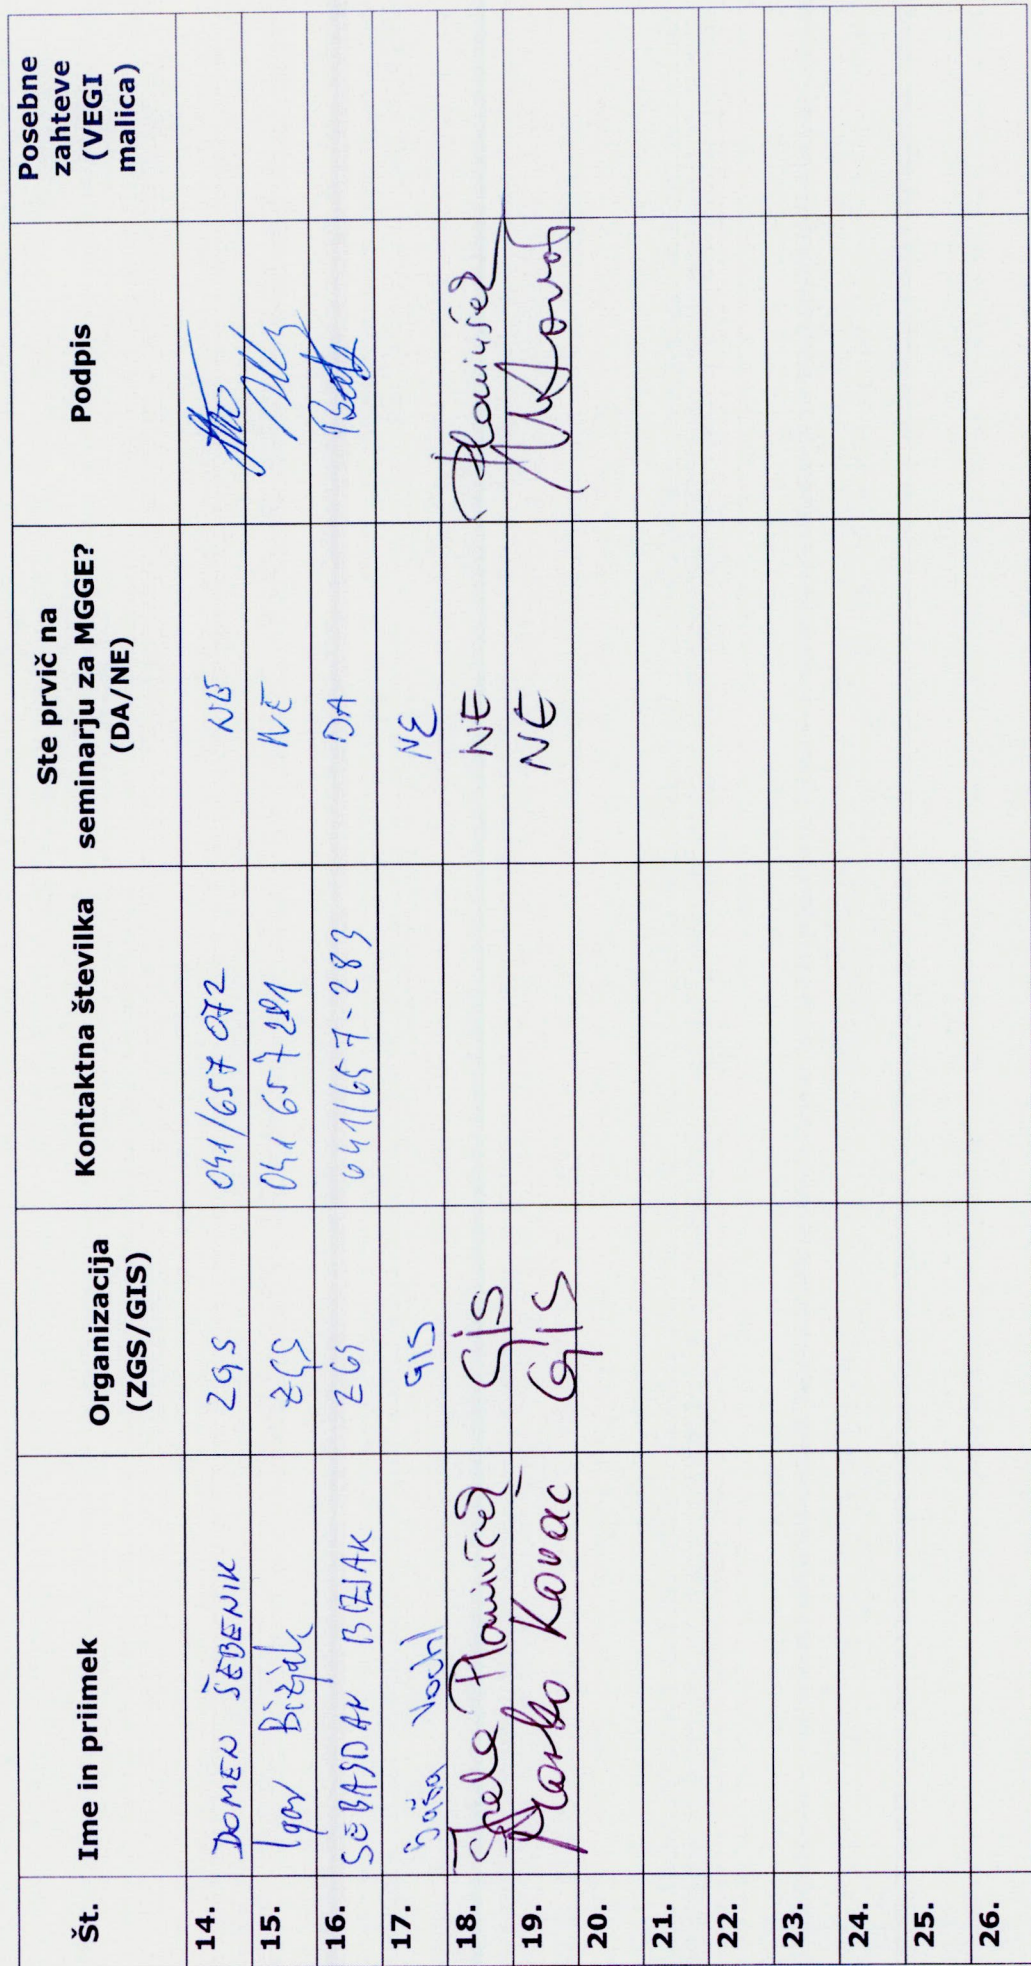 Št. Ime in priimek Organizacija (ZGS/GIS) Kontaktna številka Ste prvič na seminarju za MGGE? (DA/NE) Podpis Posebne zahteve (VEGI malica)
14. DOMEN ŠEBENIK ZGS 041/657 072 NE
15. Igor Bizjak ZGS 041 657 281 NE
16. SEBASDAN BIZJAK ZGS 041/657-283 DA
17. Saša Vochl GIS NE
18. Špela Planinšek GIS NE Planinšek
19. Marko Kovač GIS NE MKovač
20.
21.
22.
23.
24.
25.
26.